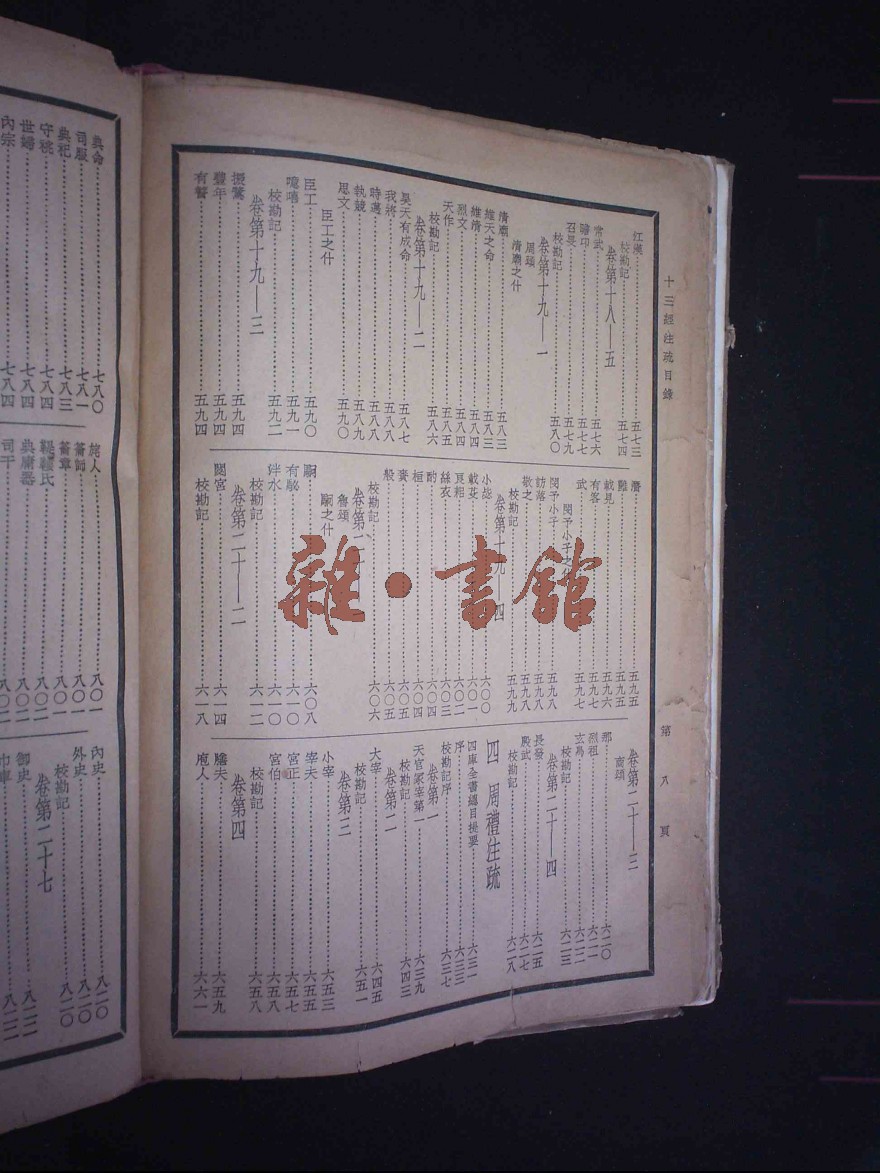 十三經注疏目錄
第八頁
江漢 五七三
校勘記 五七四
卷第十八—五
常武 五七六
瞻卬 五七七
召旻 五七九
校勘記 五八〇
卷第十九—一
周頌
清廟之什
清廟 五八三
維天之命 五八三
維清 五八四
烈文 五八五
天作 五八五
校勘記 五八六
卷第十九—二
昊天有成命 五八七
我將 五八八
時邁 五八八
執競 五八九
思文 五九〇
臣工之什
臣工 五九〇
噫嘻 五九一
校勘記 五九二
卷第十九—三
振鷺 五九四
豐年 五九四
有瞽 五九四
潛 五九五
雝 五九五
載見 五九六
有客 五九七
武 五九七
閔予小子之什
閔予小子 五九八
訪落 五九八
敬之 五九八
校勘記 五九九
卷第十九—四
小毖 六〇〇
載芟 六〇一
良耜 六〇二
絲衣 六〇三
酌 六〇四
桓 六〇四
賚 六〇五
般 六〇五
校勘記 六〇六
魯頌
駉之什
駉 六〇八
有駜 六一〇
泮水 六一〇
校勘記 六一二
卷第二十—二
閟宮 六一四
校勘記 六一八
卷第二十—三
商頌
那 六二〇
烈祖 六二一
玄鳥 六二二
校勘記 六二三
卷第二十—四
長發 六二五
殷武 六二七
校勘記 六二八
四 周禮注疏
四庫全書總目提要 六三一
序 六三三
校勘記序 六三七
卷第一
天官冢宰第一 六三九
校勘記 六四三
卷第二
大宰 六四五
校勘記 六五一
卷第三
小宰 六五三
宰夫 六五五
宮正 六五七
宮伯 六五八
校勘記 六五八
卷第四
膳夫 六五九
庖人 六六一
雜·書館
典命 七八〇
司服 七八一
典祀 七八三
守祧 七八四
世婦 七八四
內宗 七八四
旄人 八〇一
籥師 八〇一
籥章 八〇一
鞮鞻氏 八〇二
典庸器 八〇二
司干 八〇二
內史 八二〇
外史 八二〇
校勘記 八二〇
卷第二十七
御史 八二二
巾車 八二二